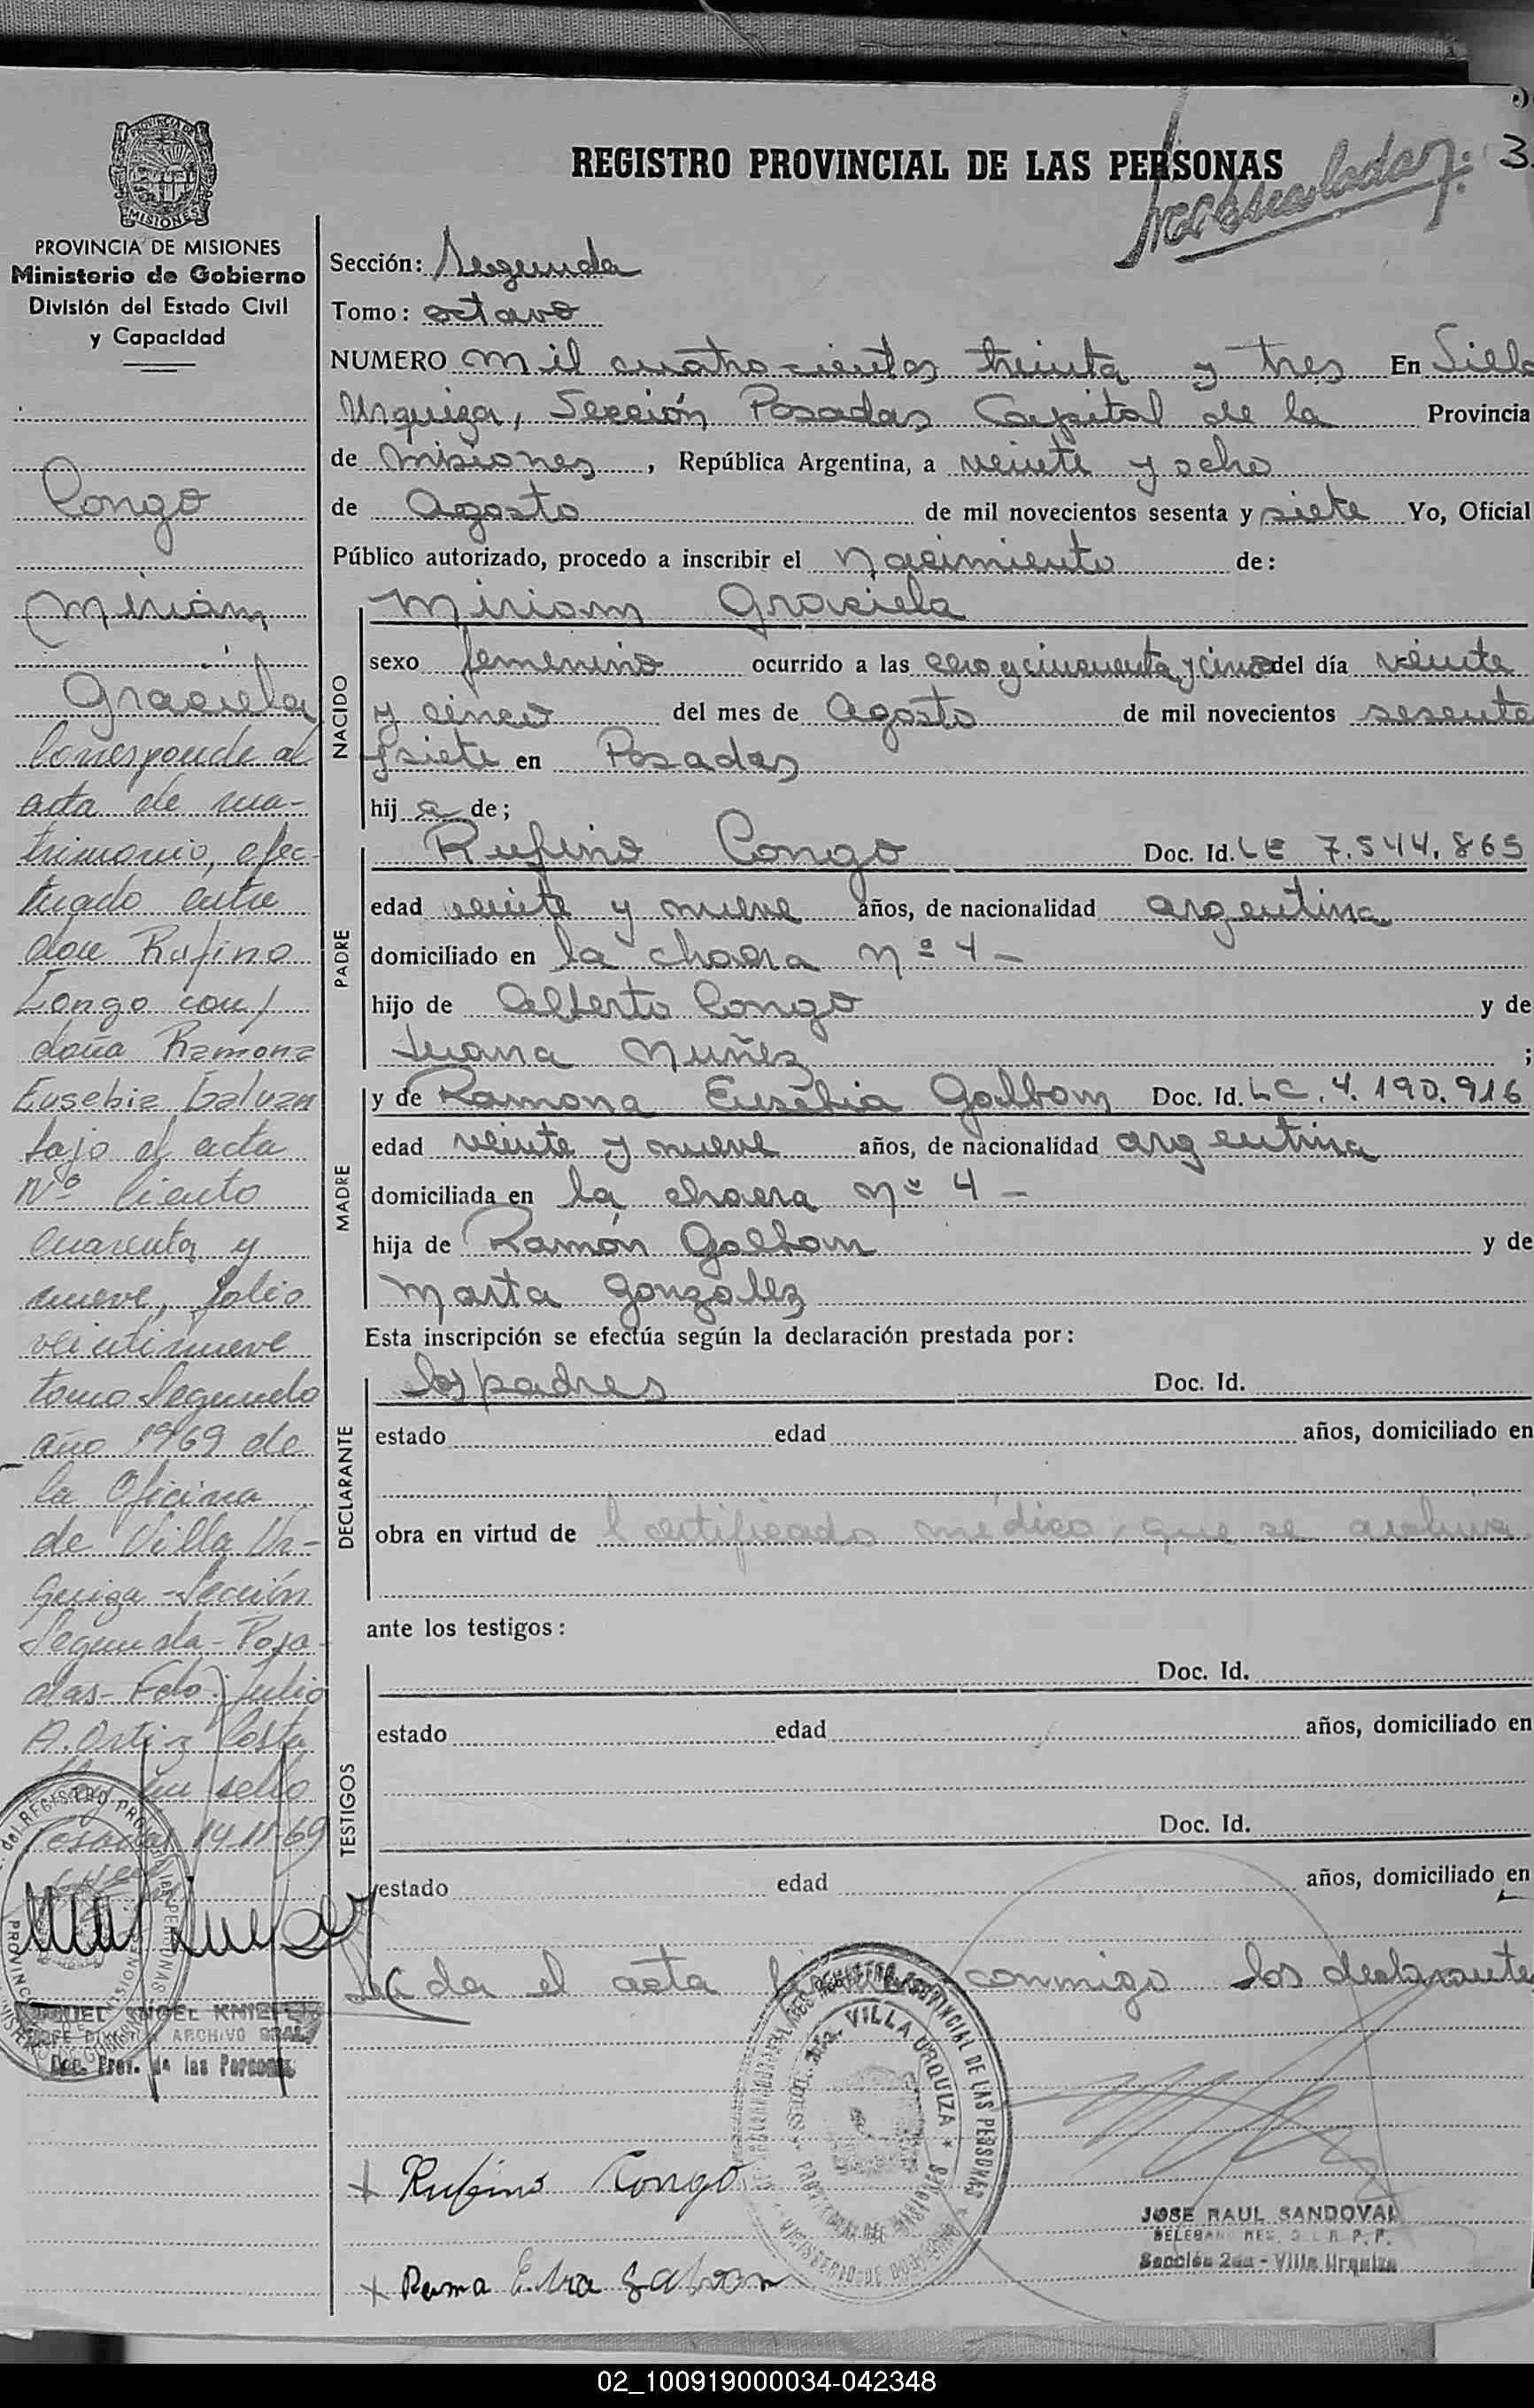 REGISTRO PROVINCIAL DE LAS PERSONAS
3
PROVINCIA DE
MISIONES
PROVINCIA DE MISIONES
Ministerio de Gobierno
División del Estado Civil
y Capacidad
Congo
Miriam
Graciela
Corresponde al
acta de ma-
trimonio, efec-
tuado entre
don Rufino
Congo con
doña Ramona
Eusebia Galvan
bajo el acta
Nº Ciento
cuarenta y
nueve, folio
veintinueve
tomo Segundo
año 1969 de
la Oficina
de Villa Ur-
quiza - Sección
Segunda - Posa-
das - Fdo: Julio
A. Ortiz Costa
un sello
Posadas 14-11-69
ANGEL
ARCHIVO GRAL
Prov. de las Personas
Sección: Segunda
Tomo: octavo
NUMERO Mil cuatrocientos treinta y tres En Villa
Urquiza, Sección Posadas Capital de la Provincia
de Misiones, República Argentina, a veinte y ocho
de Agosto de mil novecientos sesenta y siete Yo, Oficial
Público autorizado, procedo a inscribir el Nacimiento de:
Miriam Graciela
NACIDO
sexo femenino ocurrido a las cero y cincuenta y cinco del día veinte
y cinco del mes de Agosto de mil novecientos sesenta
y siete en Posadas
hija de;
PADRE
Rufino Congo Doc. Id. LE 7.544.865
edad veinte y nueve años, de nacionalidad argentina
domiciliado en la chacra Nº 4 -
hijo de Alberto Congo y de
Juana Nuñez ;
MADRE
y de Ramona Eusebia Galbam Doc. Id. LC. 4.190.916
edad veinte y nueve años, de nacionalidad argentina
domiciliada en la chacra Nº 4 -
hija de Ramón Galbam y de
Marta Gonzalez
Esta inscripción se efectúa según la declaración prestada por:
DECLARANTE
los padres Doc. Id.
estado edad años, domiciliado en
obra en virtud de Certificado médico, que se archiva
ante los testigos:
TESTIGOS
Doc. Id.
estado edad años, domiciliado en
Doc. Id.
estado edad años, domiciliado en
Leida el acta conmigo los declarante
VILLA URQUIZA
Rufino Congo
JOSE RAUL SANDOVAL
Sección 2da - Villa Urquiza
02_100919000034-042348